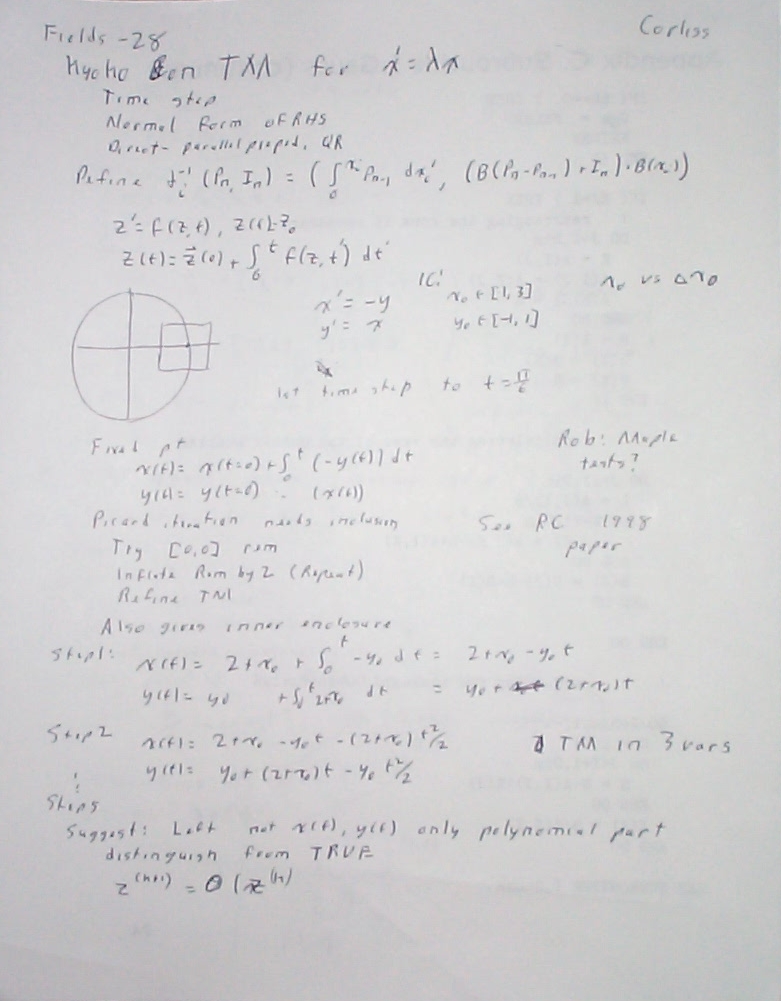 Fields - 28
Corliss
Kyoko on TM for x' = λx
Time step
Normal form of RHS
Direct - parallelpiped, QR
Define ∂⁻¹ᵢ (Pn, In) = (∫₀^xᵢ Pn-1 dxᵢ', (B(Pn - Pn-1) + In) · B(xᵢ))
z' = f(z,t), z(0) = z₀
z(t) = z(0) + ∫₀ᵗ f(z,t') dt'
IC:
x' = -y x₀ ∈ [1, 3] x₀ vs Δx₀
y' = x y₀ ∈ [-1, 1]
1st time step to t = π/6
Fixed pt
x(t) = x(t=0) + ∫₀ᵗ (-y(t)) dt
y(t) = y(t=0) (x(t))
Rob: Maple
tests?
Picard iteration needs inclusion
See RC 1998
paper
Try [0,0] rem
Inflate Rem by 2 (Repeat)
Refine TM
Also gives inner enclosure
Step 1: x(t) = 2 + x₀ + ∫₀ᵗ -y₀ dt = 2 + x₀ - y₀ t
y(t) = y₀ + ∫₀ᵗ 2 + x₀ dt = y₀ + (2 + x₀) t
Step 2 x(t) = 2 + x₀ - y₀ t - (2 + x₀) t²/2
y(t) = y₀ + (2 + x₀) t - y₀ t²/2
TM in 3 vars
⋮
Step 5
Suggest: Left not x(t), y(t) only polynomial part
distinguish from TRUE
z⁽ⁿ⁺¹⁾ = O (z⁽ⁿ⁾